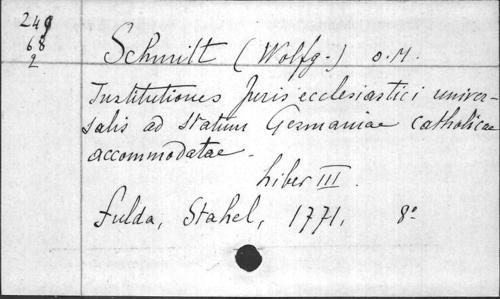 249
68
2
Schmitt (Wolfg.) O.M.
Institutiones Juris ecclesiastici univer-
salis ad statum Germaniae catholicae
accommodatae.
Liber III.
Fulda, Stahel, 1771. 8°